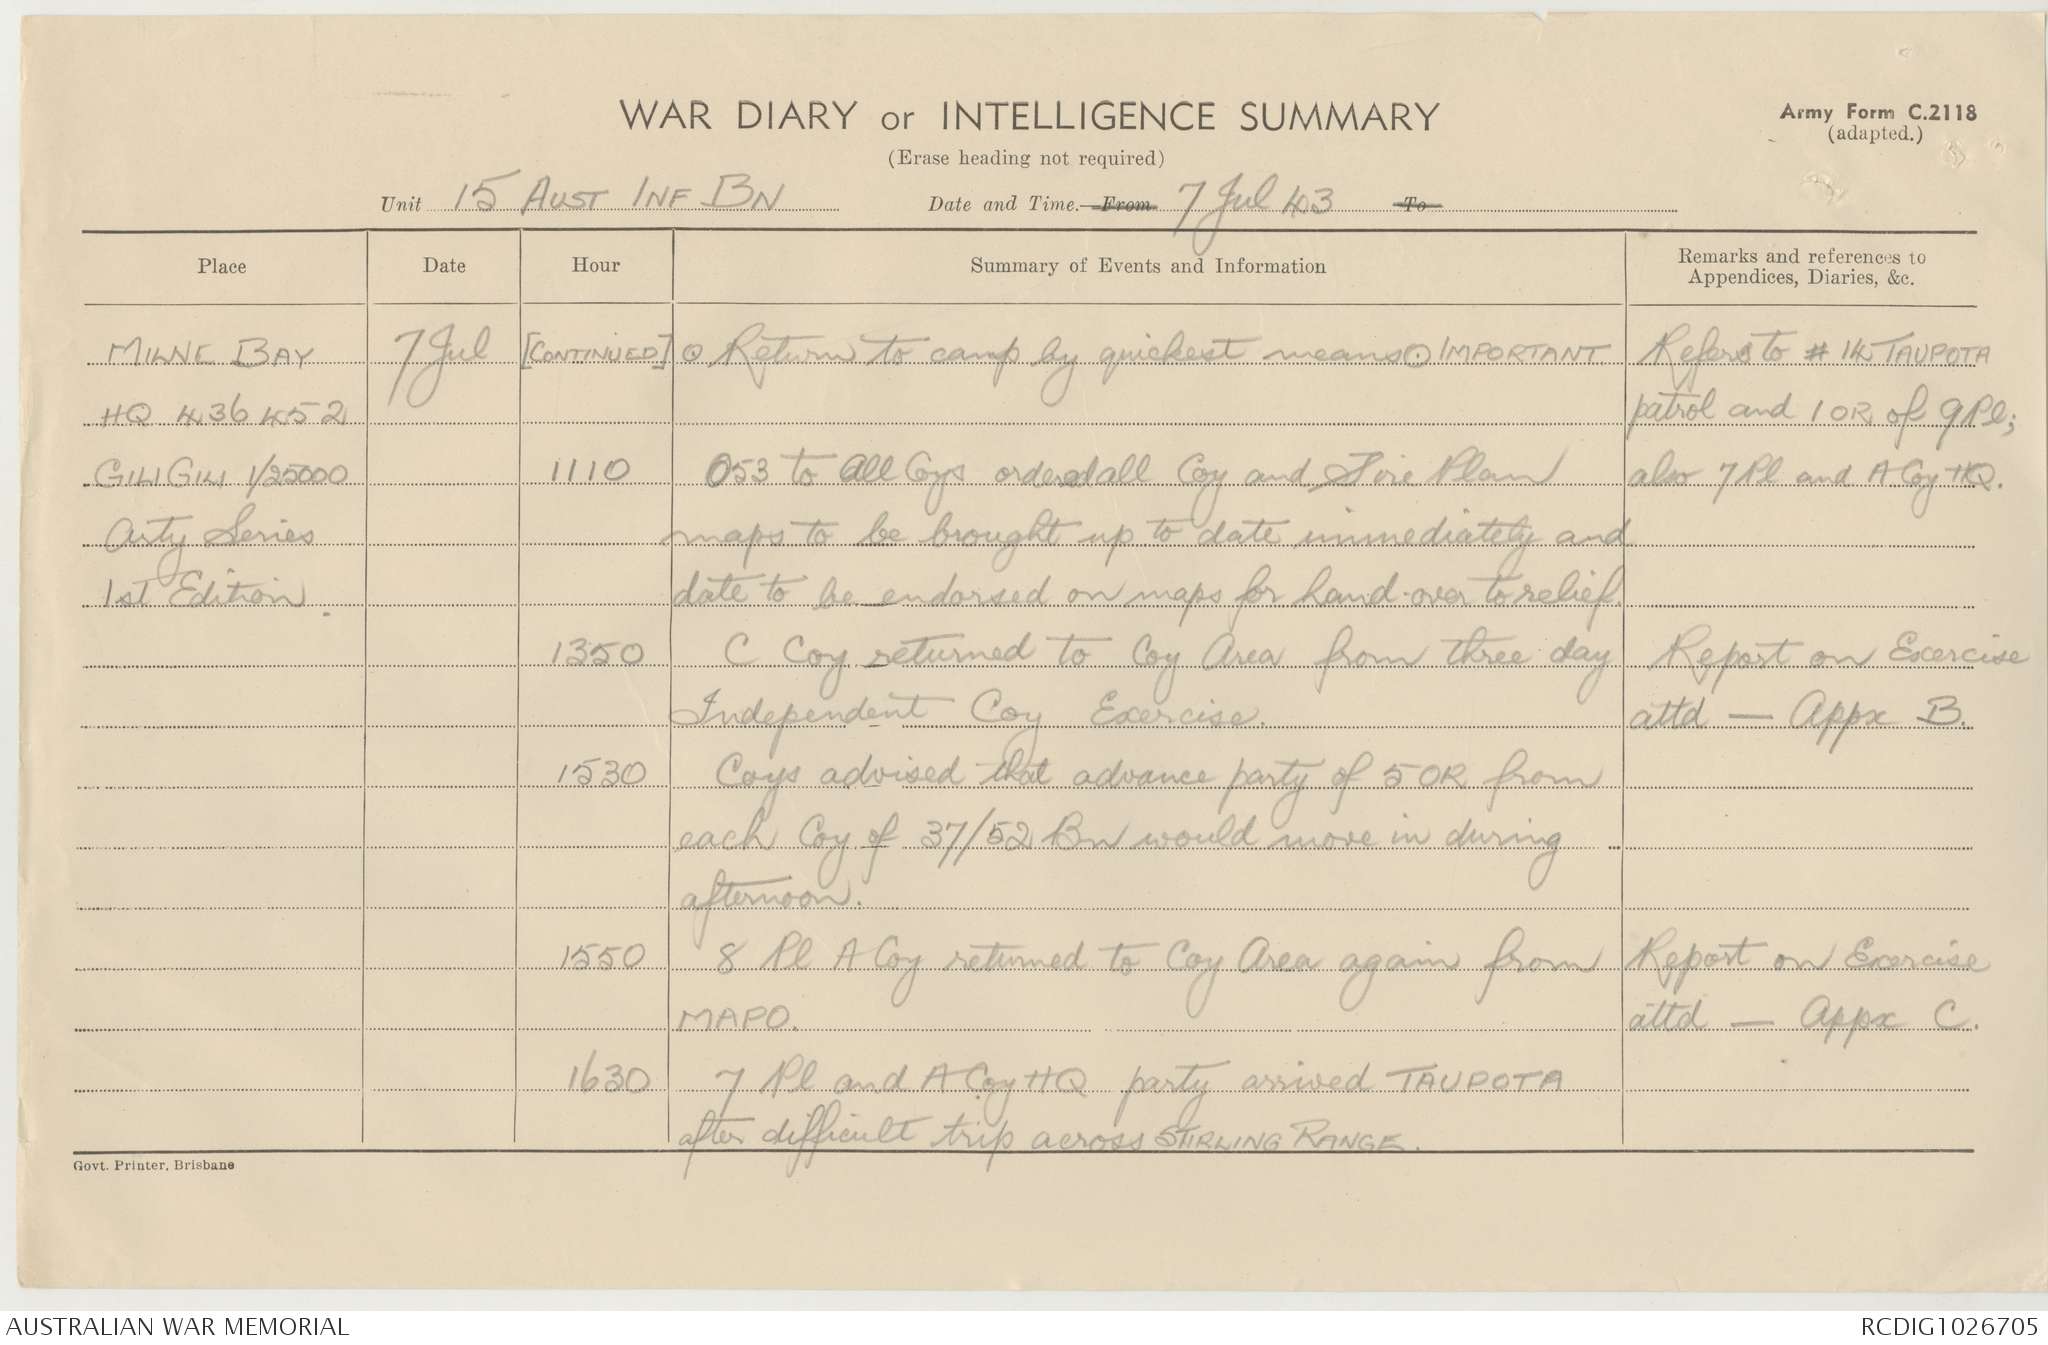 WAR DIARY or INTELLIGENCE SUMMARY
Army Form C.2118
(adapted.)
(Erase heading not required)
Unit 15 AUST INF BN Date and Time. From 7 Jul 43 To
Place Date Hour Summary of Events and Information Remarks and references to Appendices, Diaries, &c.
MILNE BAY 7 Jul [CONTINUED] ⊙ Return to camp by quickest means ⊙ IMPORTANT Refers to # 14 TAUPOTA
HQ 436452 patrol and 1 OR of 9 Pl;
GILI GILI 1/25000 1110 O53 to all Coys ordered all Coy and Fire Plan also 7 Pl and A Coy HQ.
Arty Series maps to be brought up to date immediately and
1st Edition. date to be endorsed on maps for hand-over to relief.
1350 C Coy returned to Coy Area from three day Report on Exercise
Independent Coy Exercise. attd — Appx B.
1530 Coys advised that advance party of 5 OR from
each Coy of 37/52 Bn would move in during
afternoon.
1550 8 Pl A Coy returned to Coy Area again from Report on Exercise
MAPO. attd — Appx C.
1630 7 Pl and A Coy HQ party arrived TAUPOTA
after difficult trip across STIRLING RANGE.
Govt. Printer, Brisbane
AUSTRALIAN WAR MEMORIAL RCDIG1026705